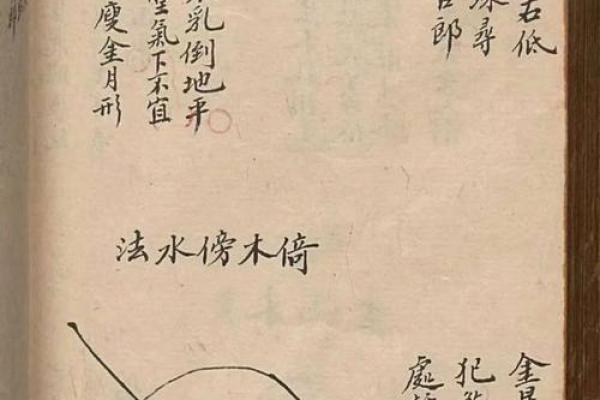 右低
尋
郎
乳倒地平
氣下不宜
瘦金月形
倚木傍水法
金
犯
處